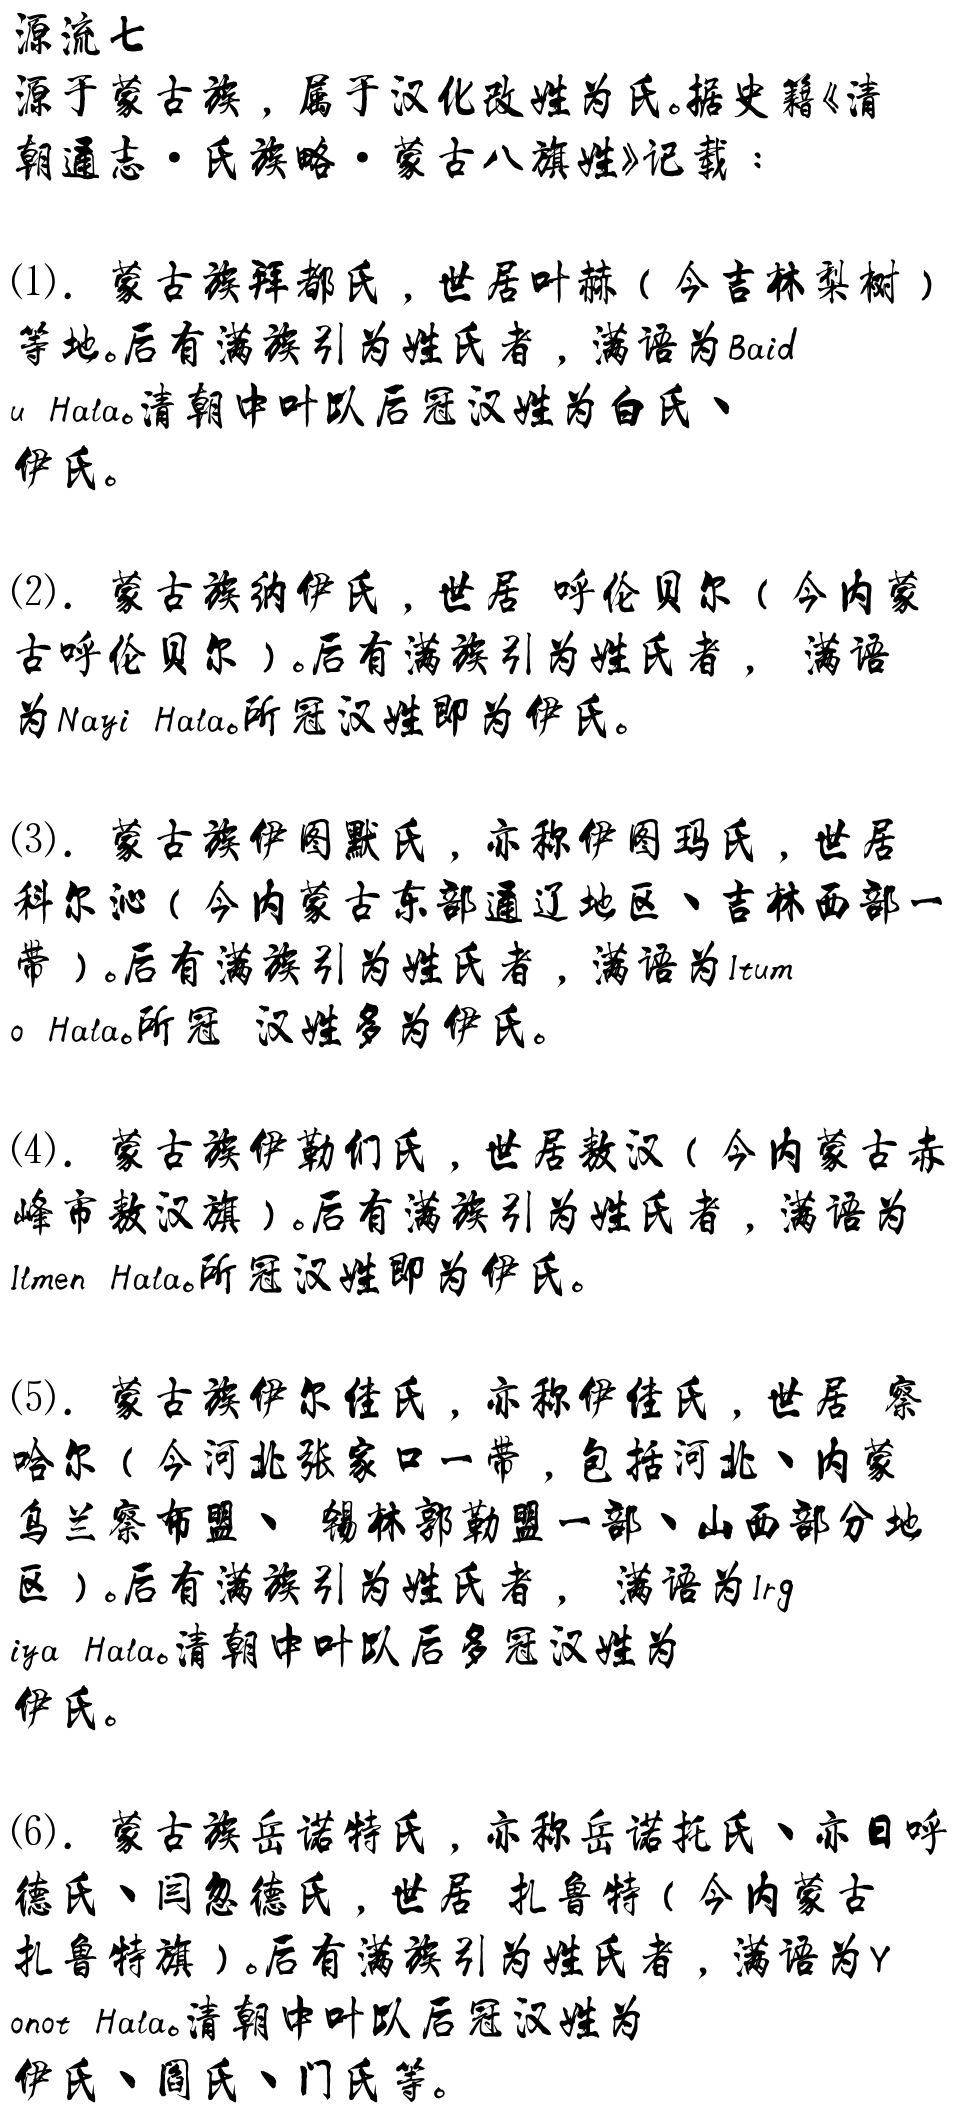 源流七
源于蒙古族，属于汉化改姓为氏。据史籍《清
朝通志·氏族略·蒙古八旗姓》记载：
(1). 蒙古族拜都氏，世居叶赫（今吉林梨树）
等地。后有满族引为姓氏者，满语为Baid
u Hala。清朝中叶以后冠汉姓为白氏、
伊氏。
(2). 蒙古族纳伊氏，世居 呼伦贝尔（今内蒙
古呼伦贝尔）。后有满族引为姓氏者， 满语
为Nayi Hala。所冠汉姓即为伊氏。
(3). 蒙古族伊图默氏，亦称伊图玛氏，世居
科尔沁（今内蒙古东部通辽地区、吉林西部一
带）。后有满族引为姓氏者，满语为Itum
o Hala。所冠 汉姓多为伊氏。
(4). 蒙古族伊勒们氏，世居敖汉（今内蒙古赤
峰市敖汉旗）。后有满族引为姓氏者，满语为
Ilmen Hala。所冠汉姓即为伊氏。
(5). 蒙古族伊尔佳氏，亦称伊佳氏，世居 察
哈尔（今河北张家口一带，包括河北、内蒙
乌兰察布盟、 锡林郭勒盟一部、山西部分地
区）。后有满族引为姓氏者， 满语为Irg
iya Hala。清朝中叶以后多冠汉姓为
伊氏。
(6). 蒙古族岳诺特氏，亦称岳诺托氏、亦曰呼
德氏、闫忽德氏，世居 扎鲁特（今内蒙古
扎鲁特旗）。后有满族引为姓氏者，满语为Y
onot Hala。清朝中叶以后冠汉姓为
伊氏、阎氏、门氏等。